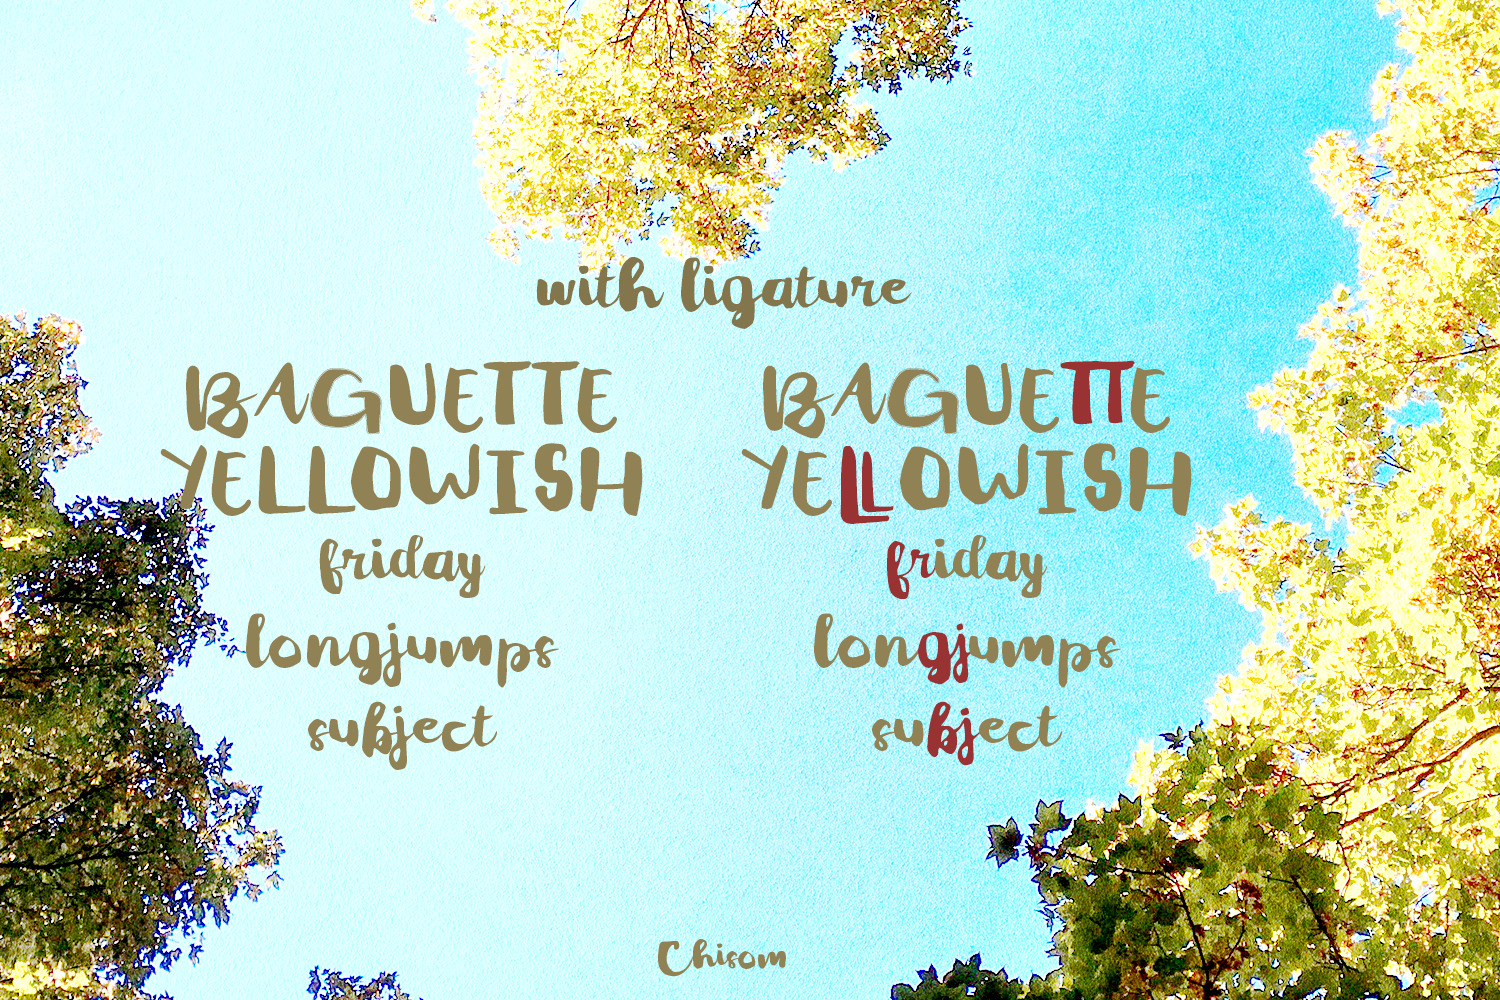 with ligature
BAGUETTE BAGUETTE
YELLOWISH YELLOWISH
friday friday
longjumps longjumps
subject subject
Chisom